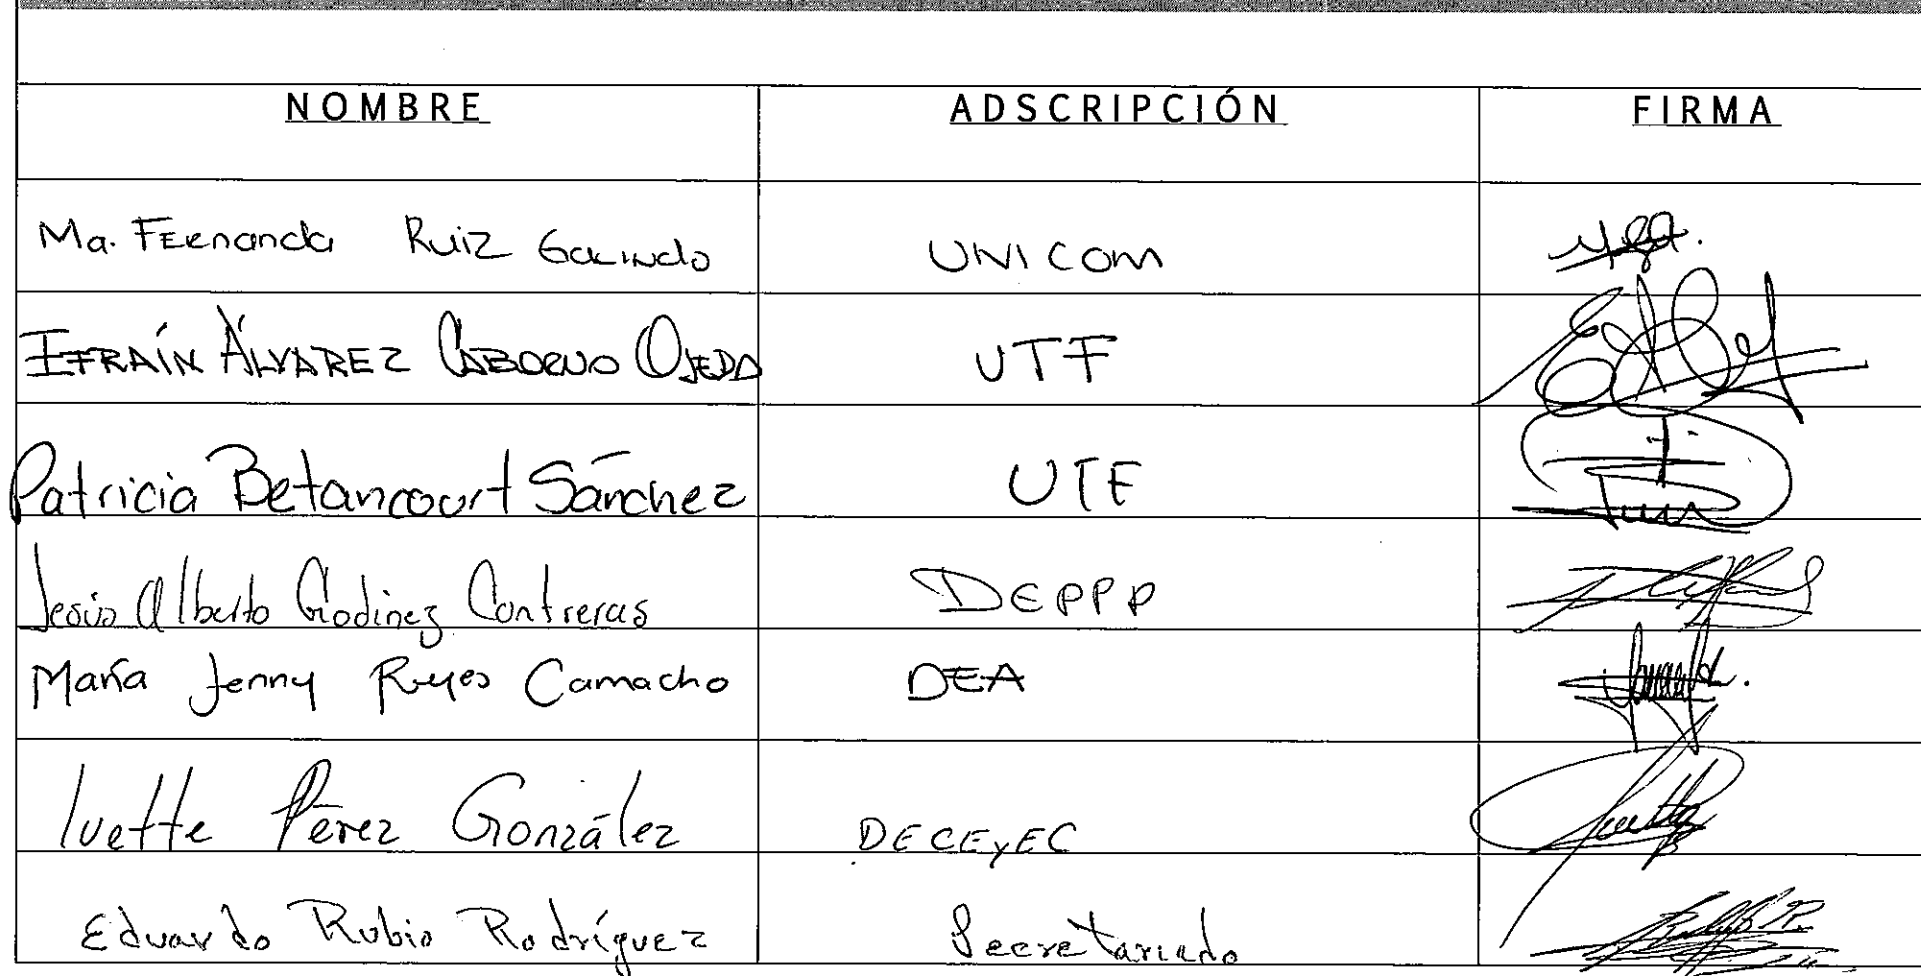 NOMBRE ADSCRIPCIÓN FIRMA
Ma. Fernanda Ruiz Galindo UNICOM
EFRAÍN ÁLVAREZ CABORNO OJEDA UTF
Patricia Betancourt Sánchez UTF
Jesús Alberto Godinez Contreras DEPPP
María Jenny Reyes Camacho DEA
Ivette Pérez González DECEyEC
Eduardo Rubio Rodríguez Secretariado